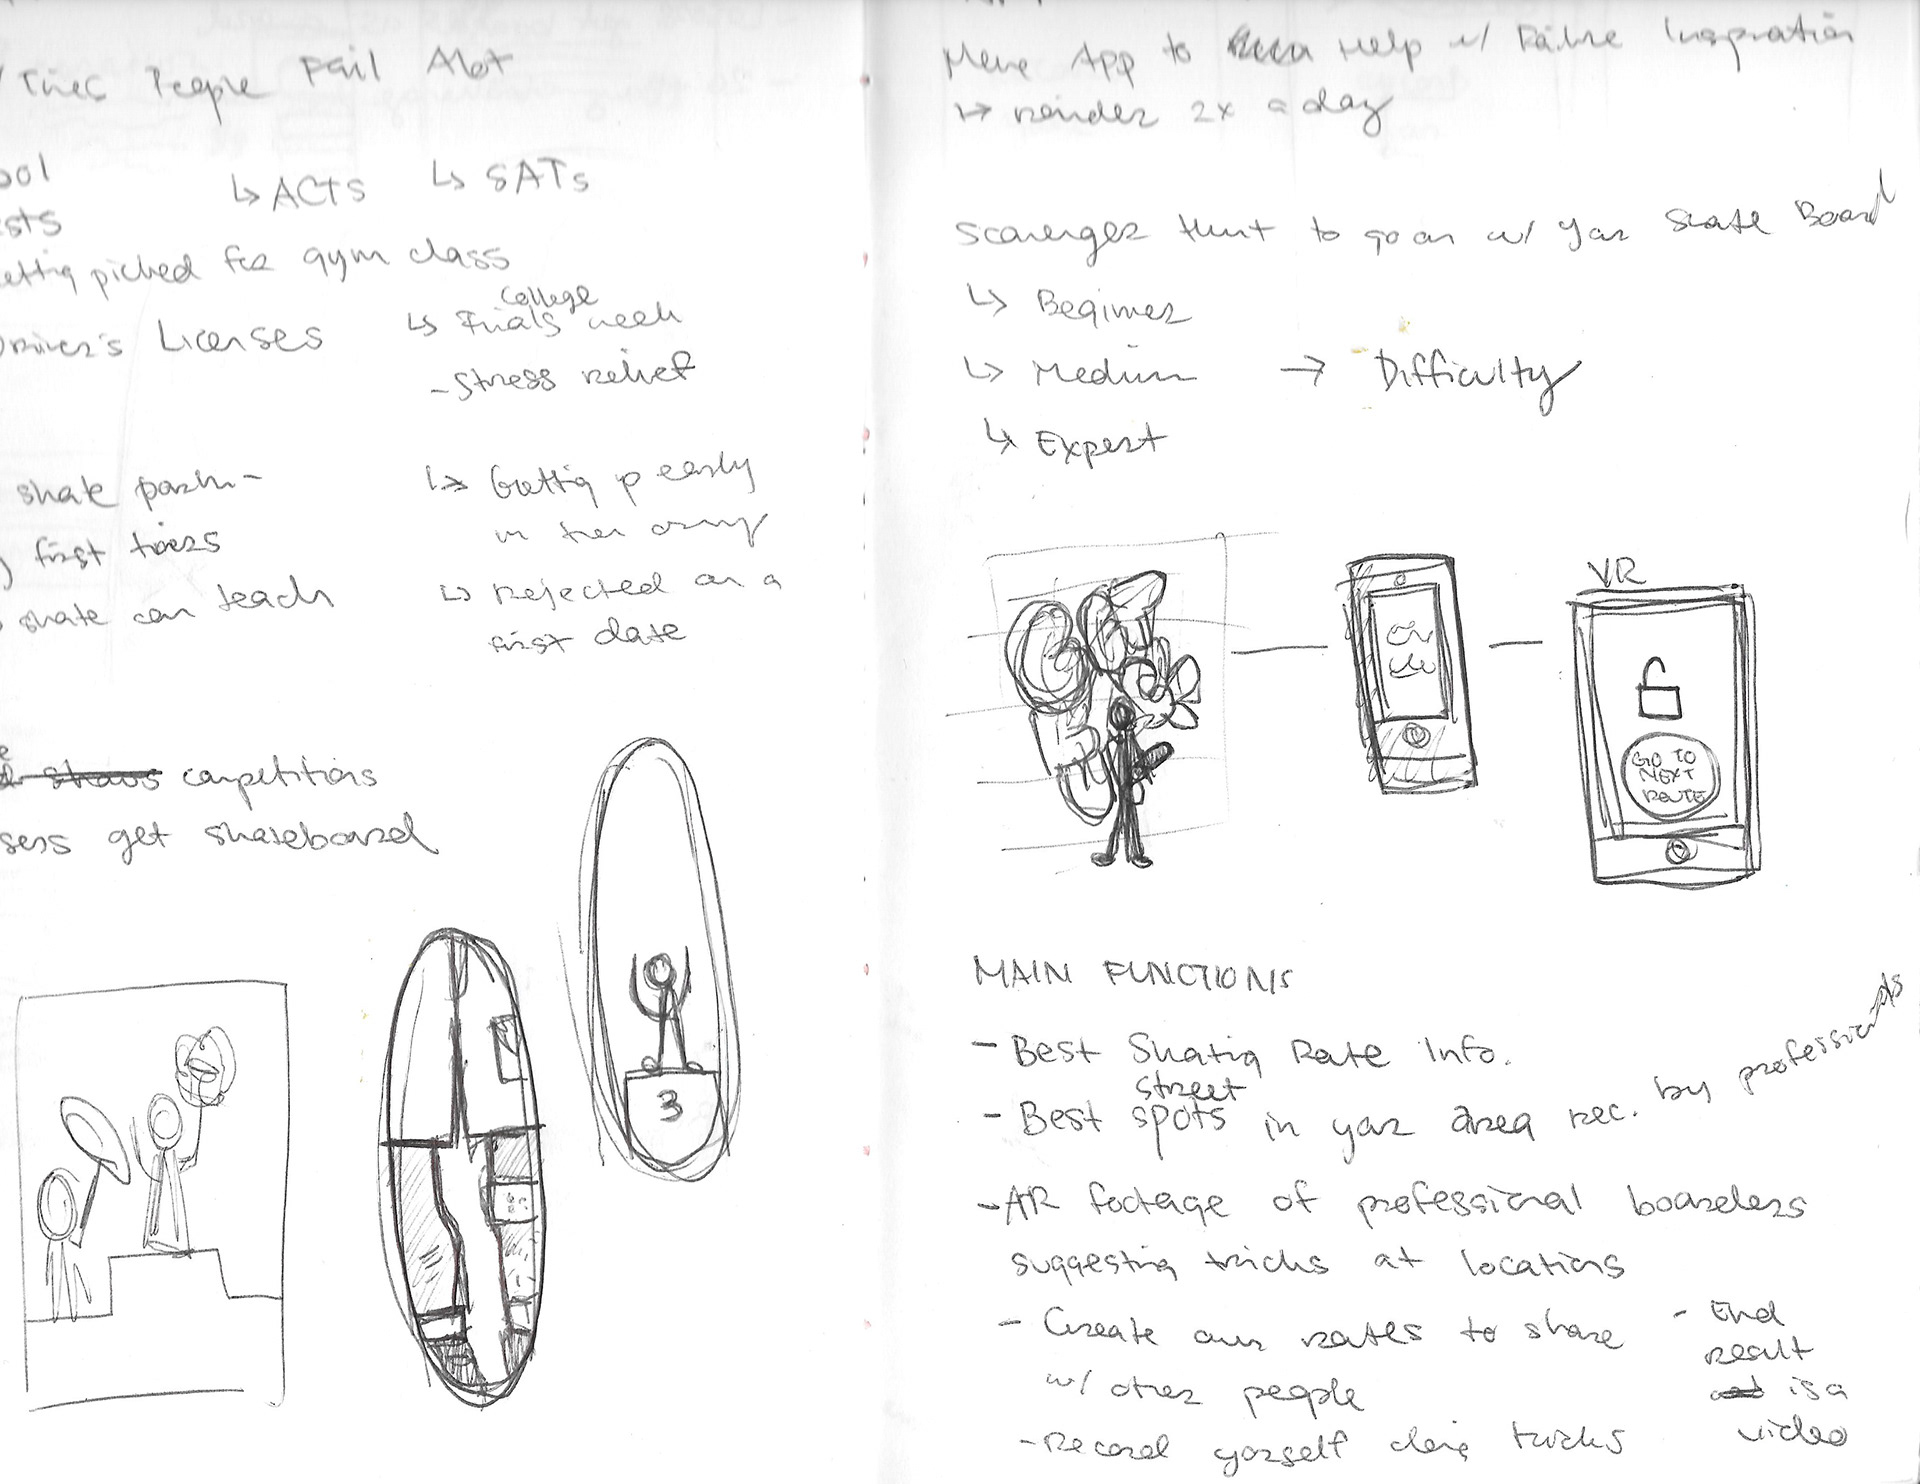 Times People Fail Alot
ool
ests
↳ ACTs
↳ SATs
etting picked for gym class
Driver's Licenses
↳ Finals college week
- Stress relief
skate park -
first timers
skate can teach
↳ Getting up early
in the army
↳ Rejected on a
first date
shows competitions
sers get skateboard
3
Meme App to Help w/ Failure Inspiration
↳ reminder 2x a day
Scavenger Hunt to go on w/ your Skate Board
↳ Beginner
↳ Medium → Difficulty
↳ Expert
VR
GO TO
NEXT
ROUTE
MAIN FUNCTIONS
- Best Skating Route Info.
- Best street spots in your area rec. by professionals
- AR footage of professional boarders
suggesting tricks at locations
- Create own routes to share
w/ other people
- Record yourself doing tricks
- End
result
is a
video